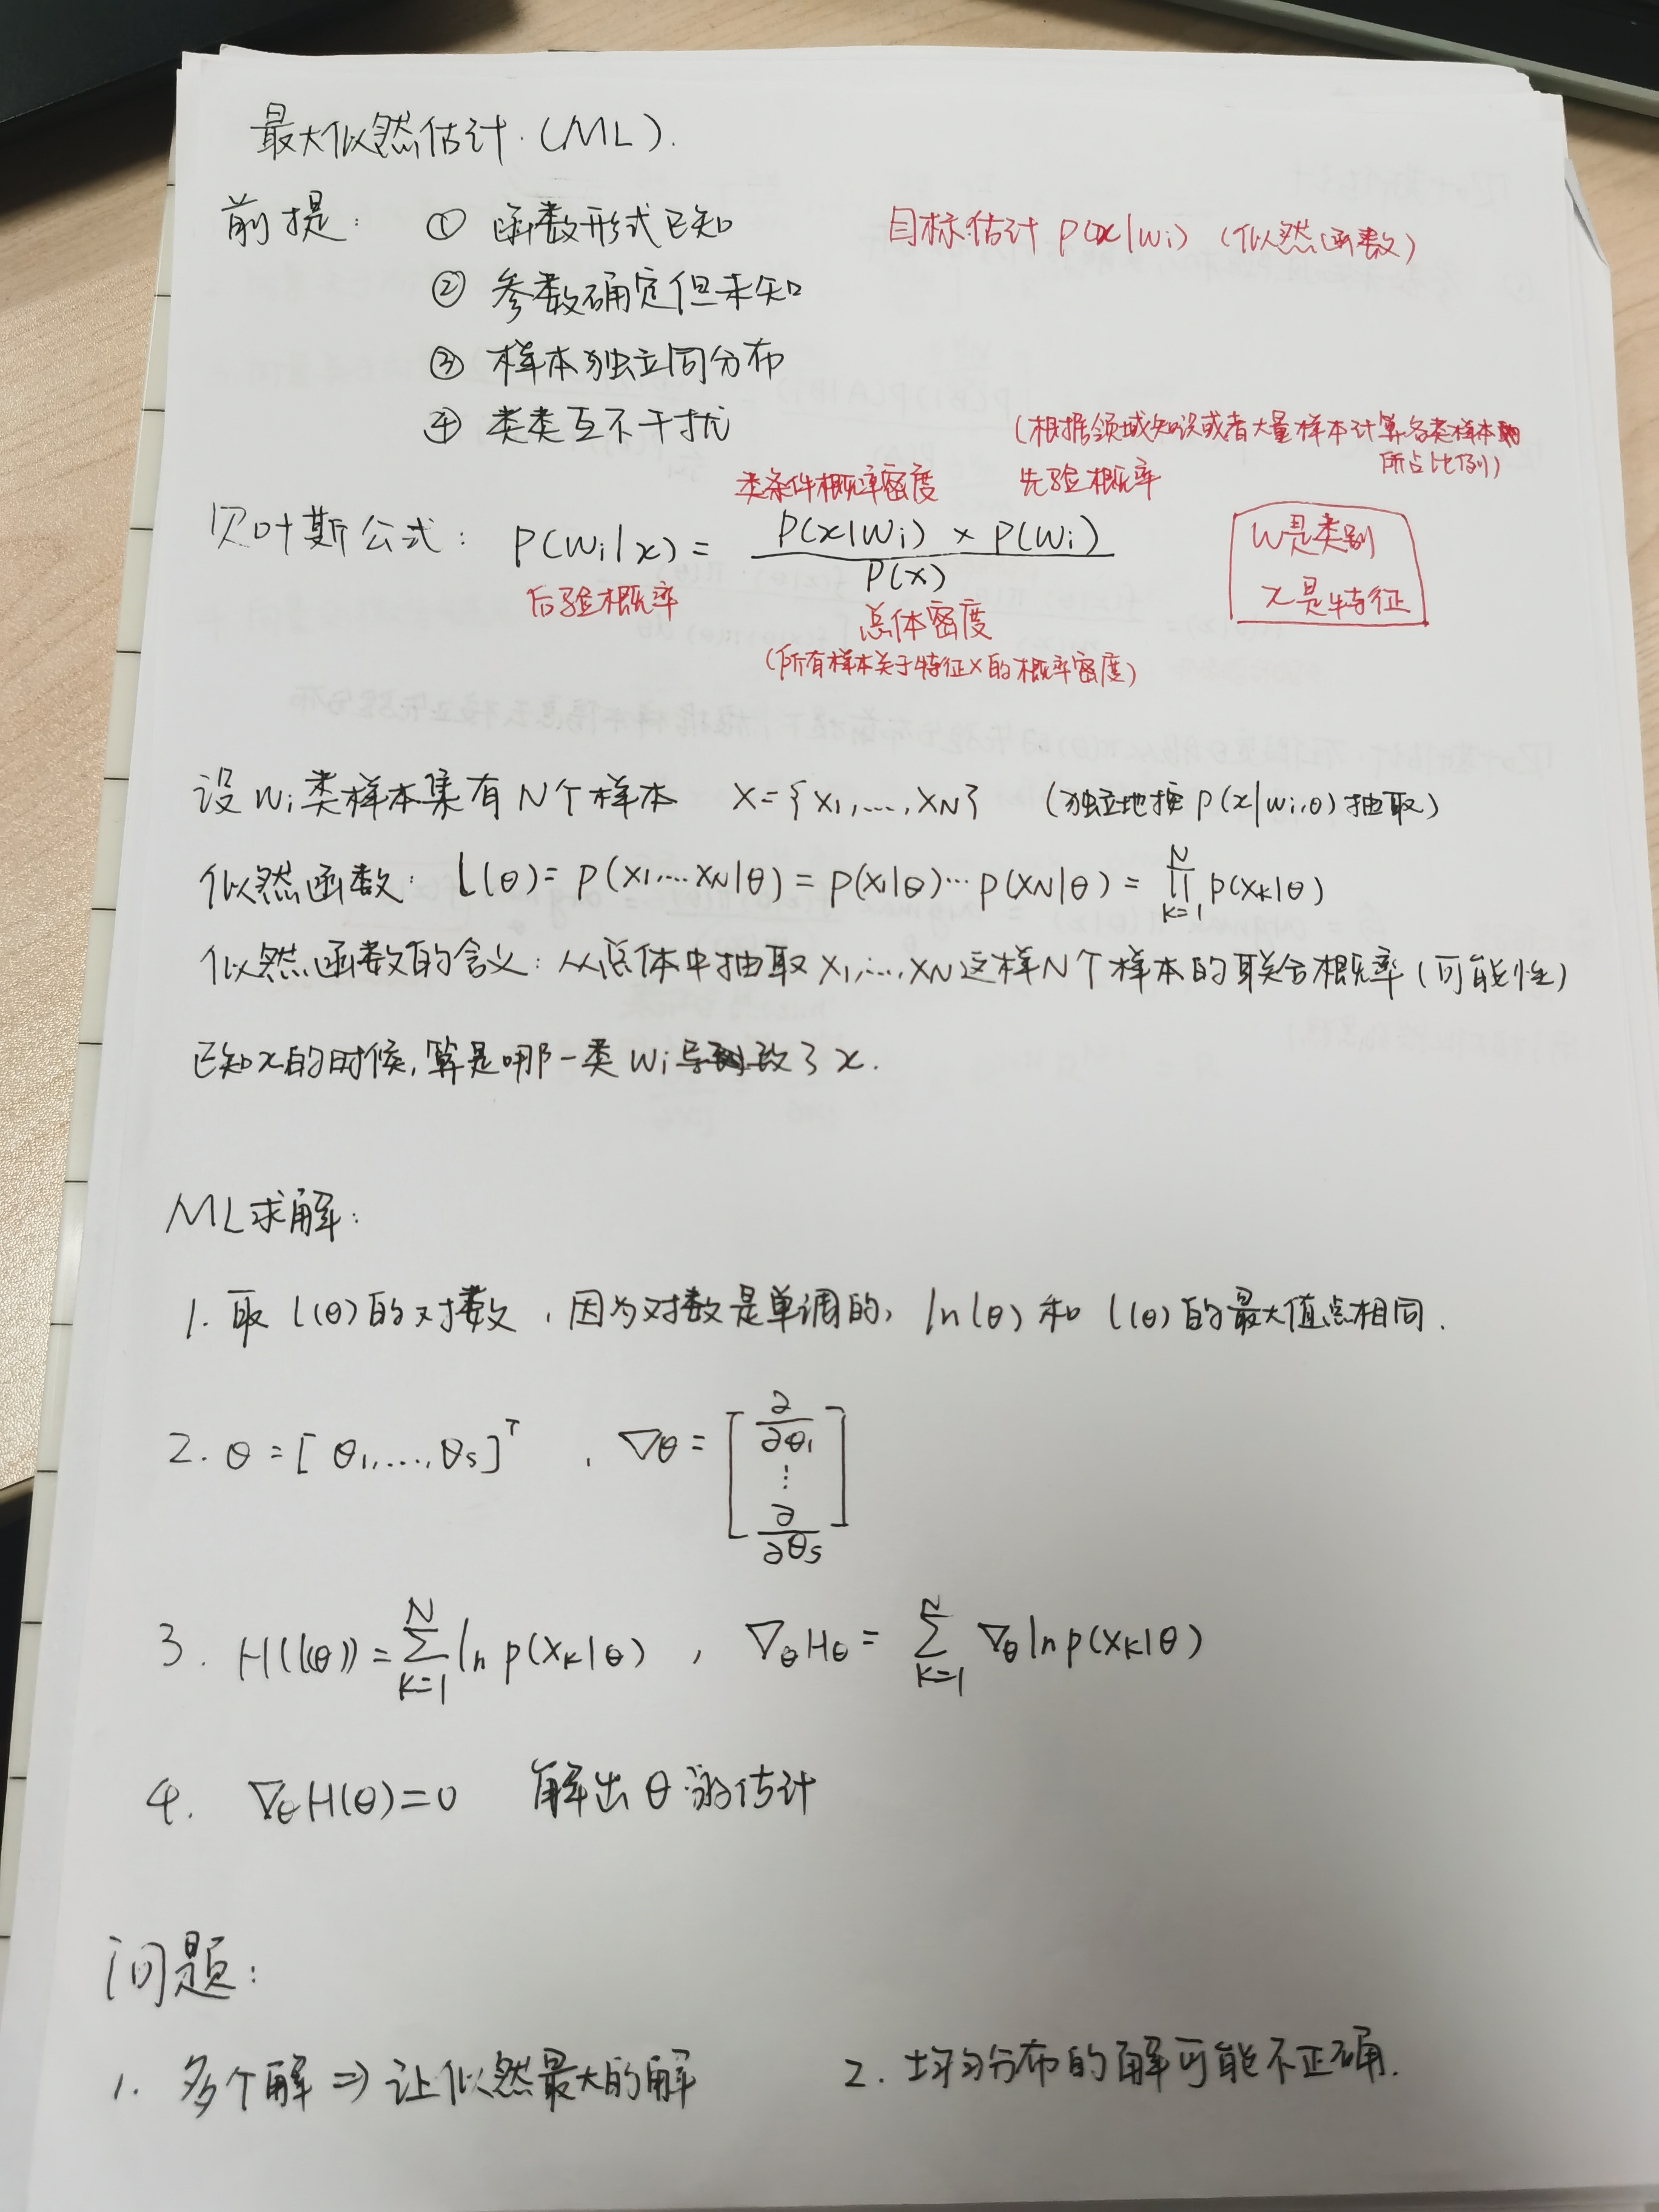 最大似然估计.(ML).
前提: ① 函数形式已知 目标:估计 P(x|wi) (似然函数)
② 参数确定但未知
③ 样本独立同分布
④ 类类互不干扰
(根据领域知识或者大量样本计算各类样本
所占比例)
类条件概率密度 先验概率
贝叶斯公式: P(wi|x) = P(x|wi) × P(wi) / P(x)
后验概率
总体密度
(所有样本关于特征x的概率密度)
w是类别
x是特征
设wi类样本集有N个样本 X={x1,...,xN} (独立地按p(x|wi,θ)抽取)
似然函数: l(θ)= p(x1,...xN|θ) = p(x1|θ)...p(xN|θ) = ∏_{k=1}^{N} p(xk|θ)
似然函数的含义: 从总体中抽取x1,...,xN这样N个样本的联合概率(可能性)
已知x的时候,算是哪一类wi导致了x.
ML求解:
1. 取 l(θ)的对数,因为对数是单调的, ln(θ) 和 l(θ)的最大值点相同.
2. θ=[θ1,...,θs]^T , ∇θ= [∂/∂θ1 ⋮ ∂/∂θs]
3. H(l(θ))=∑_{k=1}^{N} ln p(xk|θ) , ∇θHθ = ∑_{k=1}^{N} ∇θ ln p(xk|θ)
4. ∇θH(θ)=0 解出θ的估计
问题:
1. 多个解 ⇒ 让似然最大的解 2. 均匀分布的解可能不正确.